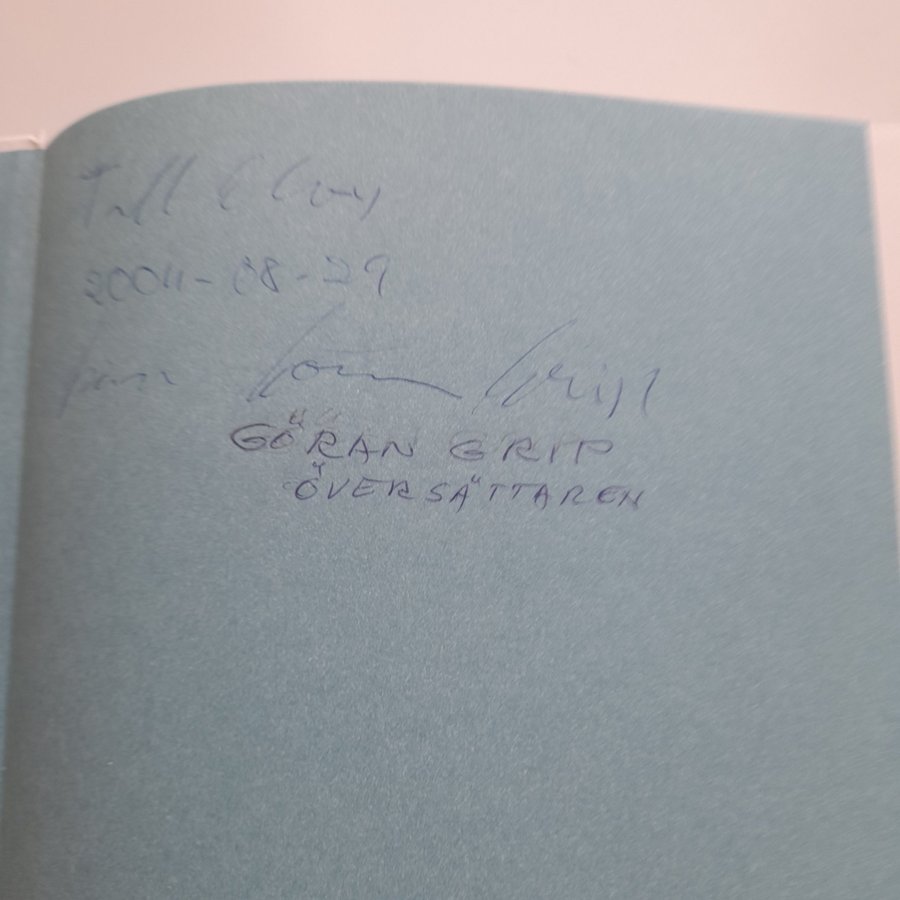 Till
2004-08-29
från Göran Grip
GÖRAN GRIP
ÖVERSÄTTAREN